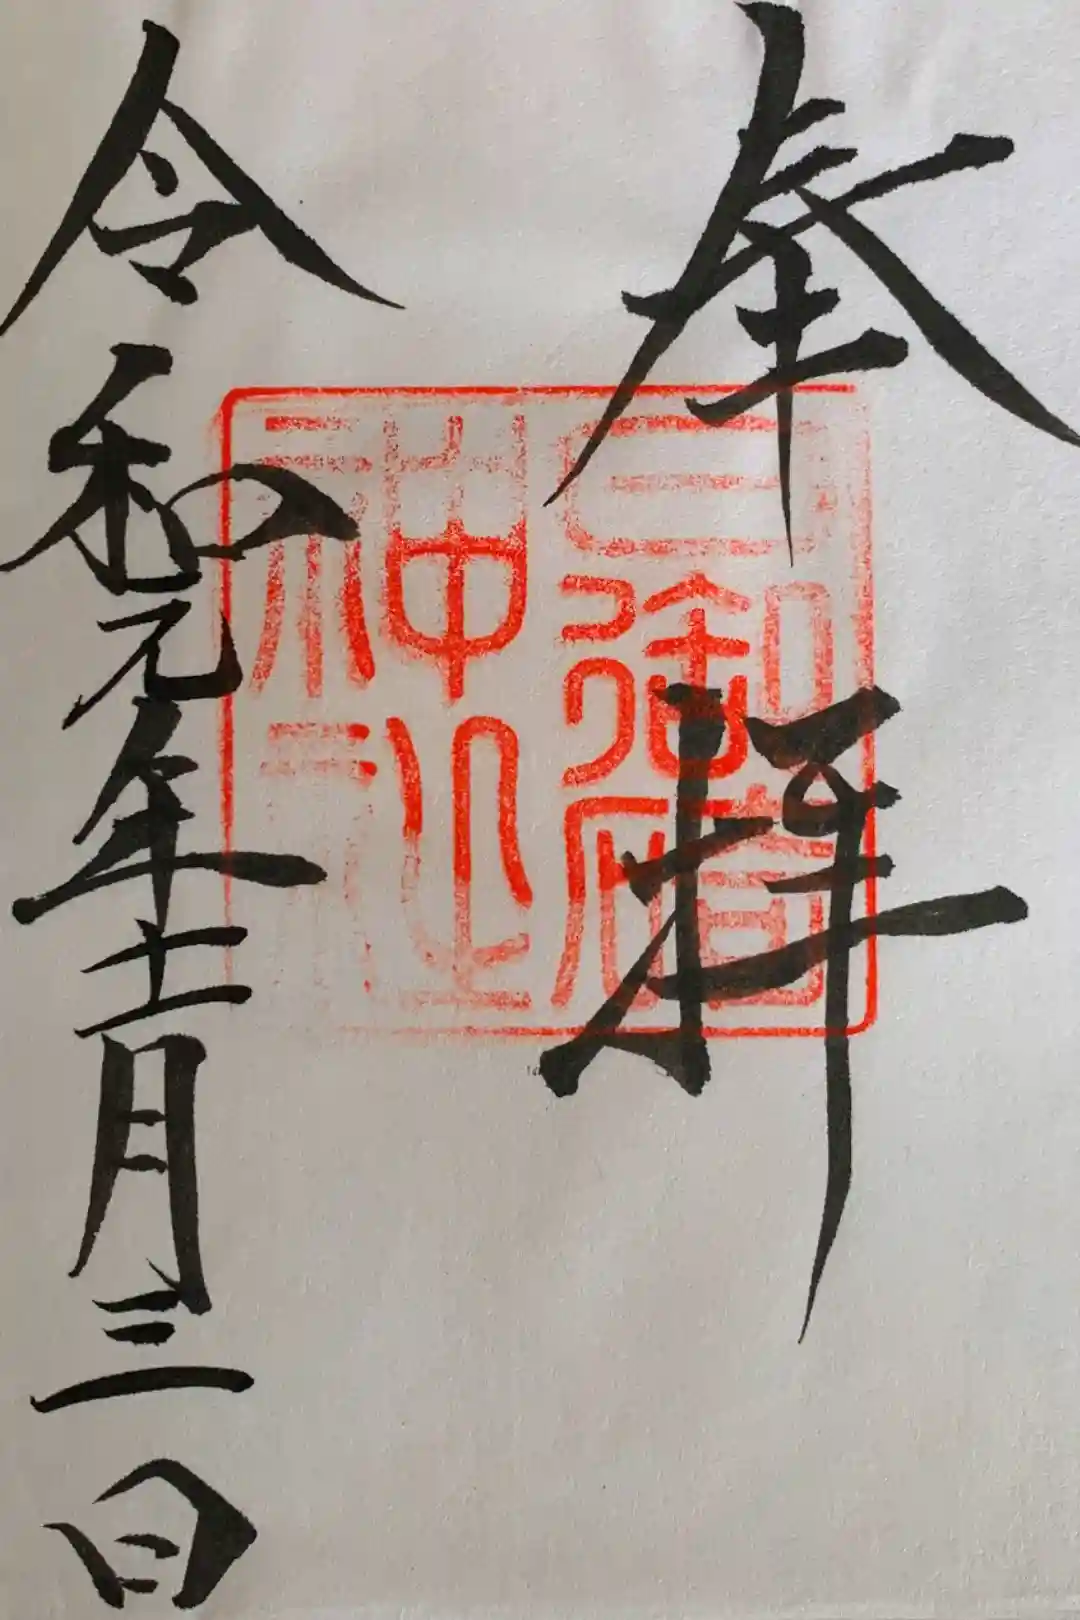 奉拝
日御碕
神社
令和元年十一月三日